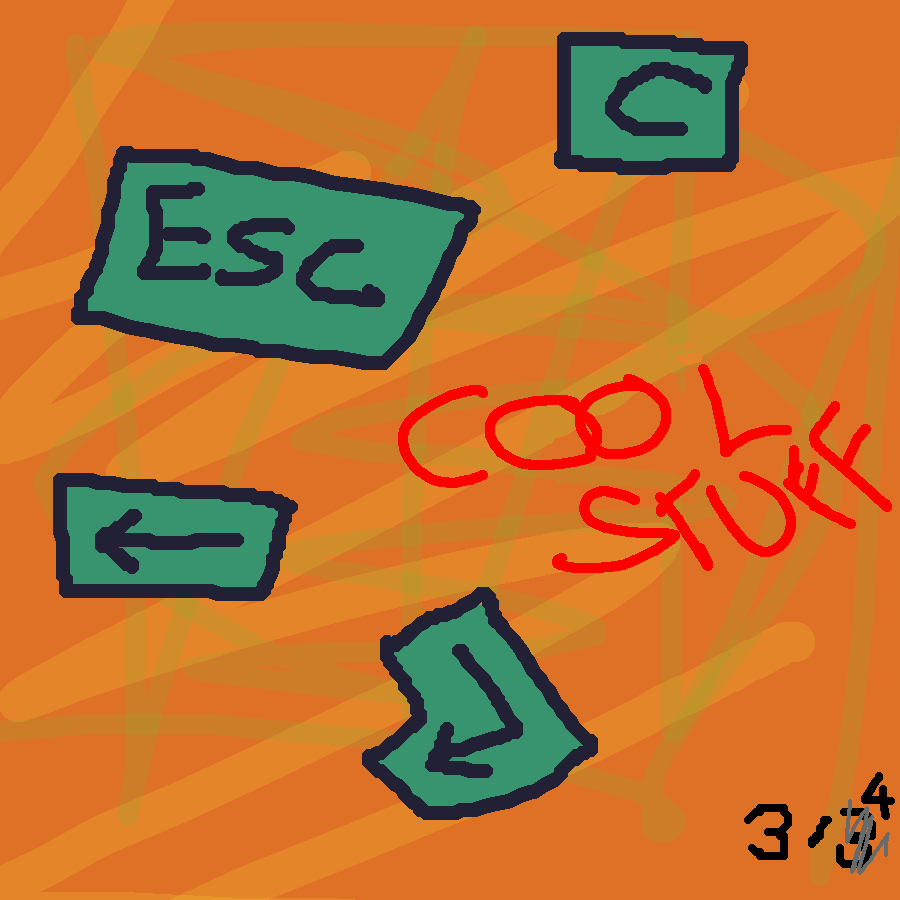 C
Esc
COOL
STUFF
←
↲
3/4